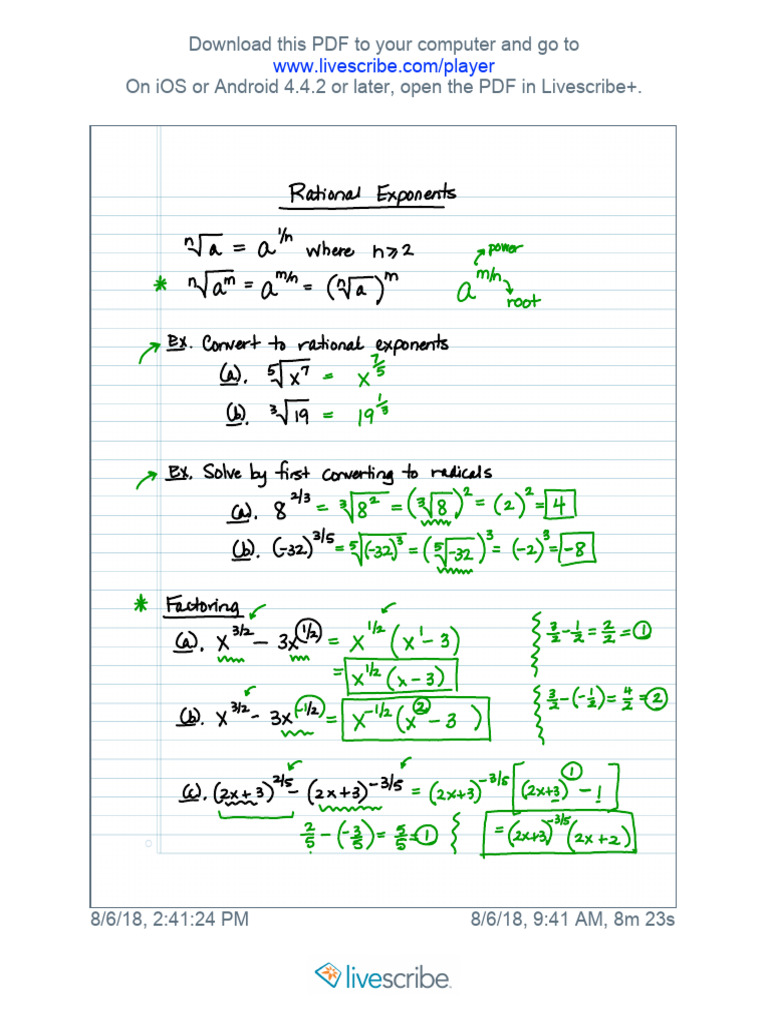 Download this PDF to your computer and go to
www.livescribe.com/player
On iOS or Android 4.4.2 or later, open the PDF in Livescribe+.
Rational Exponents
ⁿ√a = a^(1/n) where n ≥ 2
* ⁿ√(a^m) = a^(m/n) = (ⁿ√a)^m
a^(m/n) power root
Ex. Convert to rational exponents
(a). ⁵√(x^7) = x^(7/5)
(b). ³√19 = 19^(1/3)
Ex. Solve by first converting to radicals
(a). 8^(2/3) = ³√(8^2) = (³√8)^2 = (2)^2 = 4
(b). (-32)^(3/5) = ⁵√((-32)^3) = (⁵√-32)^3 = (-2)^3 = -8
* Factoring
(a). x^(3/2) - 3x^(1/2) = x^(1/2) (x^1 - 3)
= x^(1/2) (x - 3)
3/2 - 1/2 = 2/2 = 1
(b). x^(3/2) - 3x^(-1/2) = x^(-1/2) (x^2 - 3)
3/2 - (-1/2) = 4/2 = 2
(c). (2x+3)^(2/5) - (2x+3)^(-3/5) = (2x+3)^(-3/5) [(2x+3)^1 - 1]
2/5 - (-3/5) = 5/5 = 1
= (2x+3)^(-3/5) (2x+2)
8/6/18, 2:41:24 PM
8/6/18, 9:41 AM, 8m 23s
livescribe